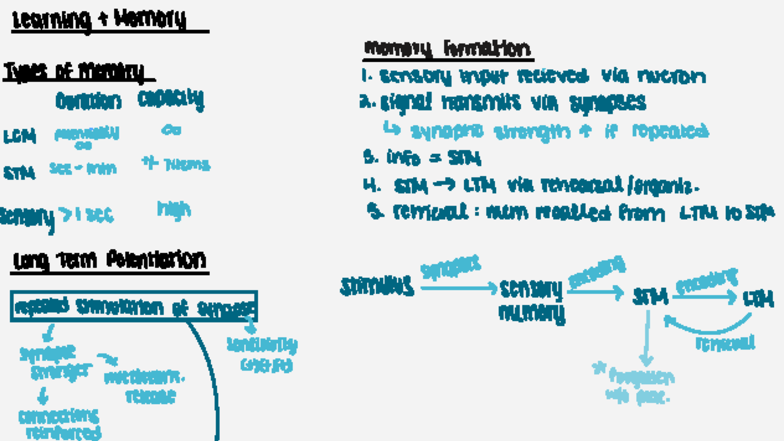 Learning + Memory
Types of Memory
Duration capacity
LTM potentially ∞ ∞
STM sec - min +/- 7 items
Sensory > 1 sec high
Long Term Potentiation
repeated stimulation of synapse
synapse
stronger
release
connections
reinforced
sensitivity
memory formation
1. sensory input recieved via nueron
2. signal transmits via synapses
↳ synaptic strength ↑ if repeated
3. info = STM
4. STM → LTM via rehearsal/organiz.
5. retrieval : mem recalled from LTM to STM
stimulus synapses sensory encoding STM encoding LTM
memory
retrieval
** forgotten
w/o prac.